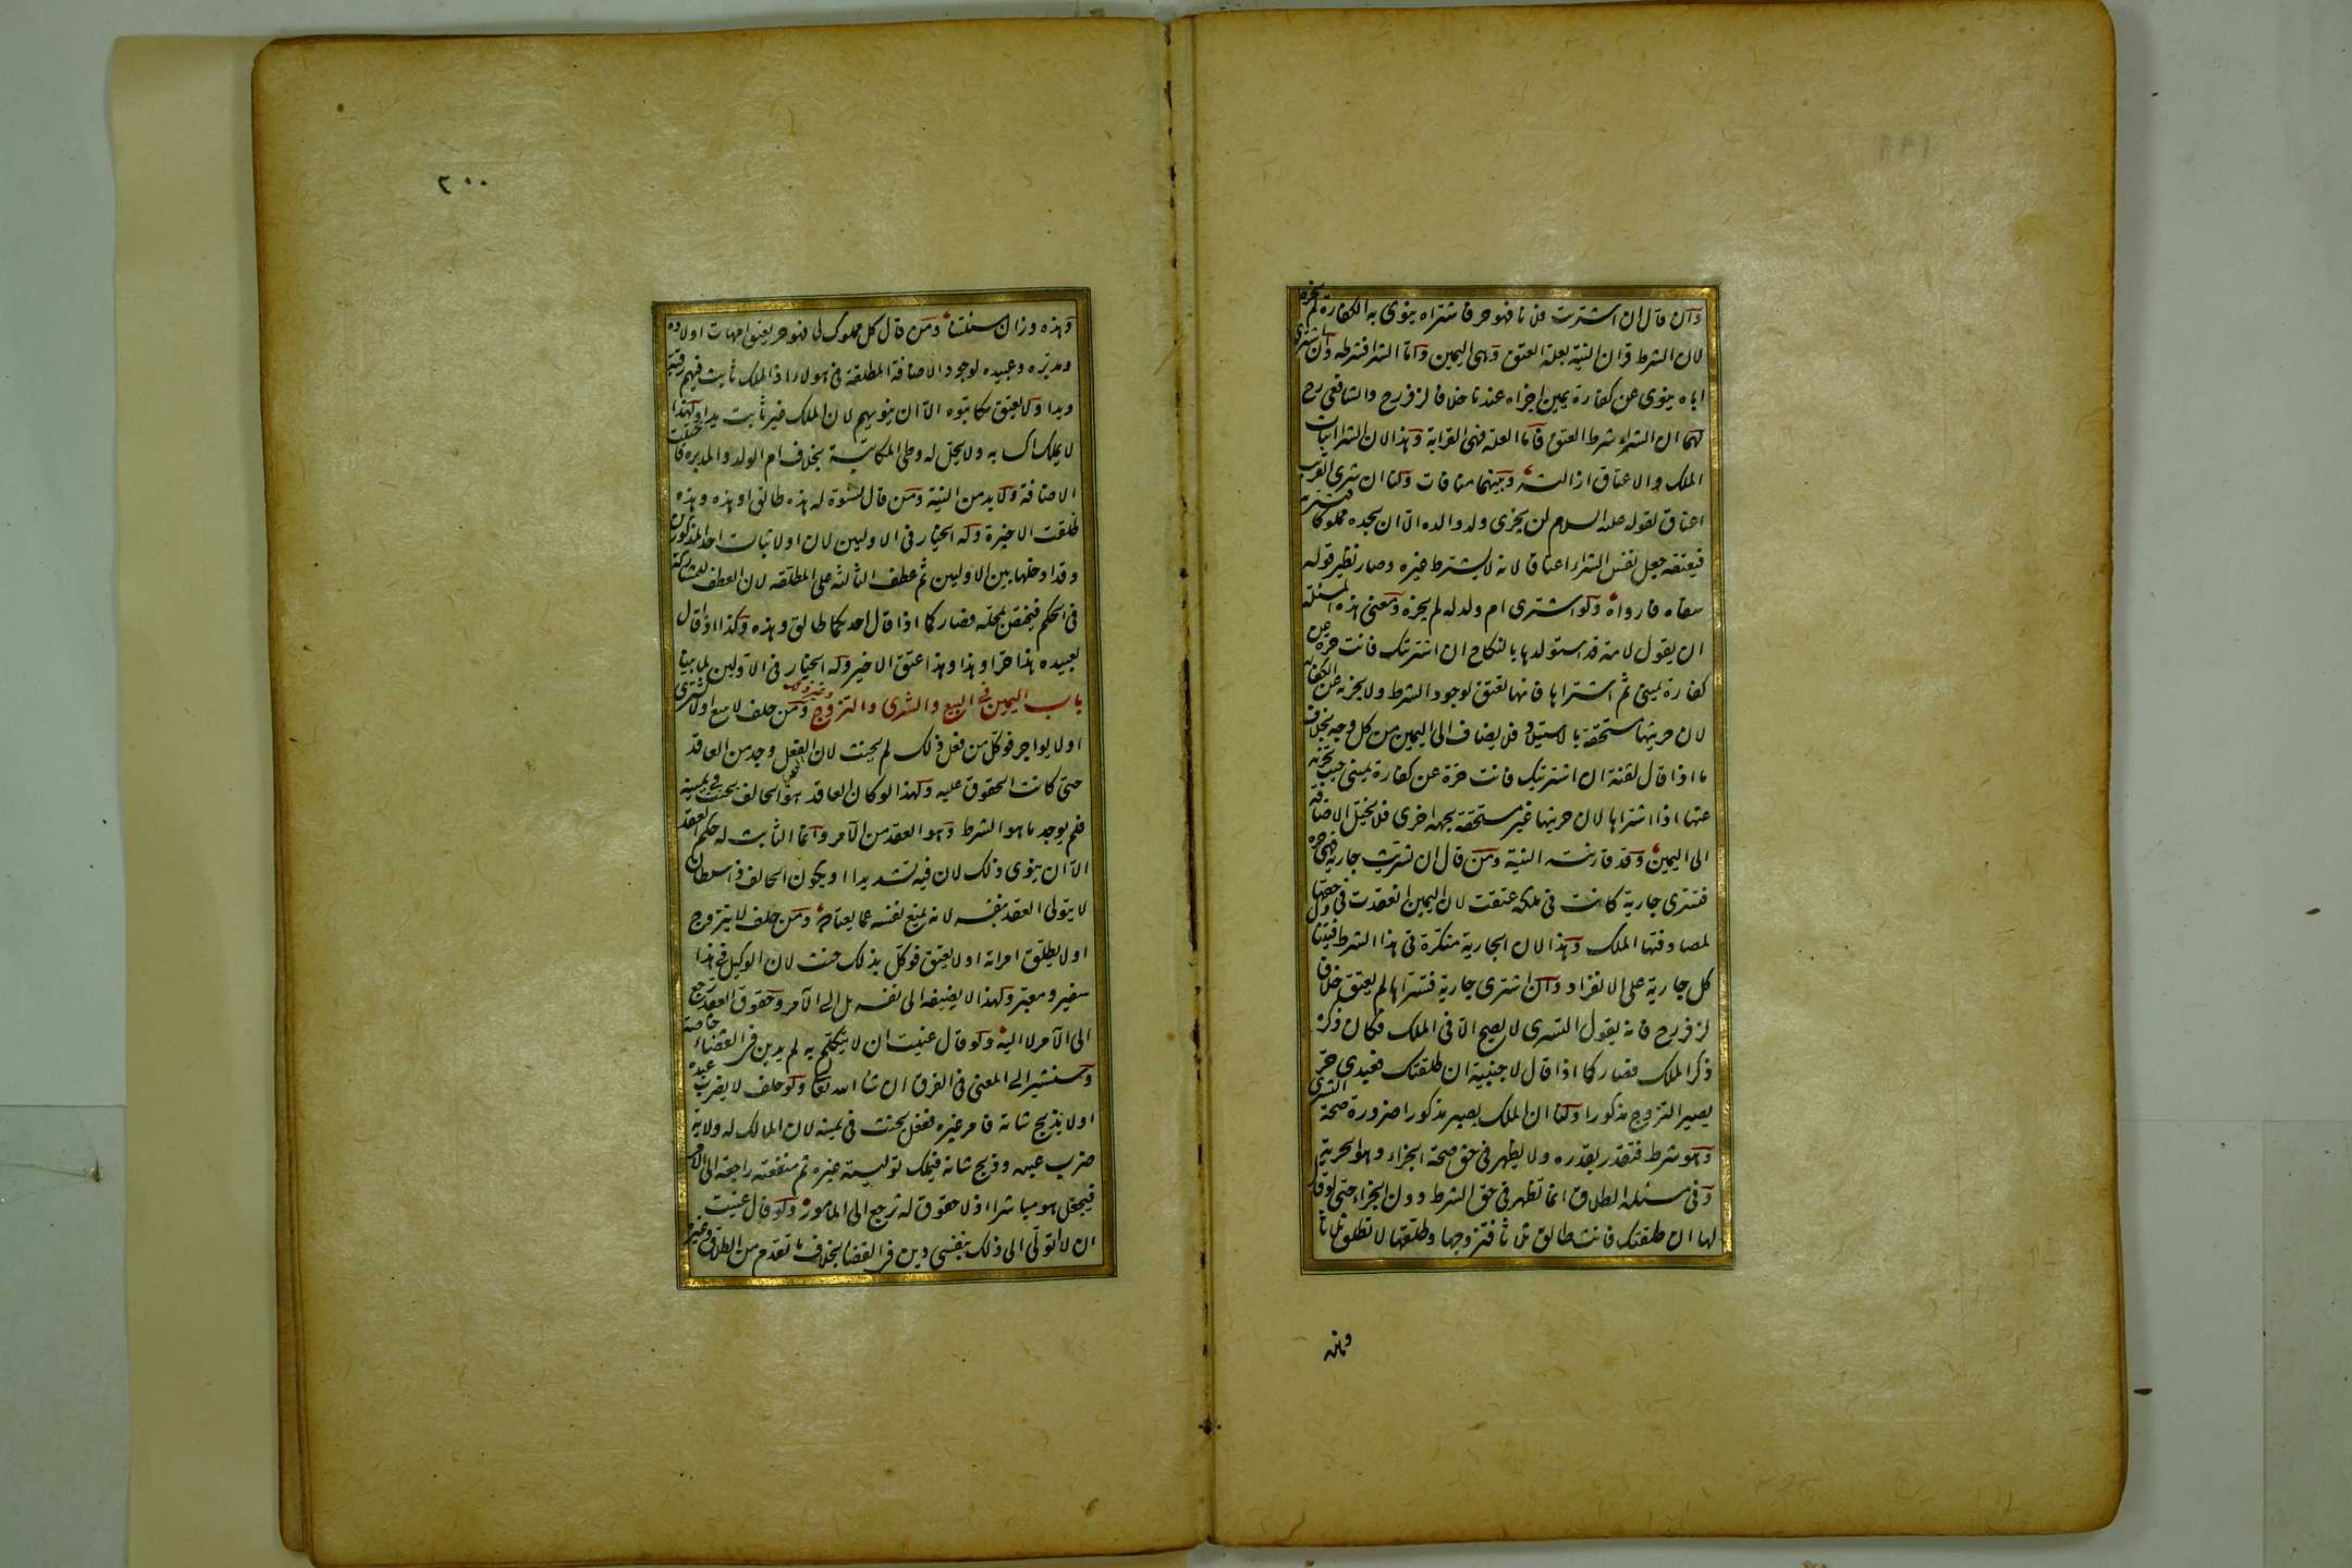 وان قال ان اشتريت فلانا فهو حر فاشتراه ينوى به الكفارة لم يجزه
لان الشرط قران النية بعلة العتق وهى اليمين واما الشرا فشرطه وان اشترى
اباه ينوى عن كفارة يمين اجزاه عندنا خلافا لزفر رح والشافعى رح
لهما ان الشراء شرط العتق فاما العلة فهى القرابة وهذا لان الشرا اثبات
الملك والاعتاق ازالته وبينهما منافات ولنا ان شرى القريب
اعتاق لقوله عليه السلام لن يجزى ولد والده الا ان يجده مملوكا فيشتريه
فيعتقه جعل نفس الشراء اعتاقا لانه لا يشترط غيره وصار نظير قوله
سقاه فارواه ولو اشترى ام ولد له لم يجزه ومعنى هذه المسئلة
ان يقول لامة قد استولدها بالنكاح ان اشتريتك فانت حرة عن
كفارة يمينى ثم اشتراها فانها تعتق لوجود الشرط ولا يجزيه عن الكفارة
لان حريتها مستحقة بالاستيلاد فلا يضاف الى اليمين من كل وجه بخلاف
ما اذا قال لقنة ان اشتريتك فانت حرة عن كفارة يمينى حيث يجزيه
عنها اذا اشتراها لان حريتها غير مستحقة بجهة اخرى فلا يختل الاضافة
الى اليمين وقد قارنته النية ومن قال ان تسريت جارية فهى حرة
فتسرى جارية كانت فى ملكه عتقت لان اليمين انعقدت فى حقها
لمصادفتها الملك وهذا لان الجارية منكرة فى هذا الشرط فيتناول
كل جارية على الانفراد وان اشترى جارية فتسراها لم يعتق خلافا
لزفر رح فانه يقول التسرى لا يصح الا فى الملك فكان ذكره
ذكر الملك فصار كما اذا قال لاجنبية ان طلقتك فعبدى حر
يصير التزوج مذكورا ولنا ان الملك يصير مذكورا ضرورة صحة التسرى
وهو شرط فتقدر بقدره ولا يظهر فى حق صحة الجزاء وهو الحرية
وفى مسئلة الطلاق انما تظهر فى حق الشرط دون الجزاء حتى لو قال
لها ان طلقتك فانت طالق ثلاثا فتزوجها وطلقها لا تطلق ثلاثا
وهذه
٢٠٠
وهذه وزان مسئلتنا ومن قال كل مملوك لى فهو حر يعتق امهات اولاده
ومدبره وعبيده لوجود الاضافة المطلقة فى هولاء اذ الملك ثابت فيهم رقبة
ويدا ولا يعتق مكاتبوه الا ان ينويهم لان الملك غير ثابت يدا ولهذا
لا يملك اكسابه ولا يحل له وطى المكاتبة بخلاف ام الولد والمدبره فاختلت
الاضافة ولا بد من النية ومن قال لنسوة له هذه طالق او هذه وهذه
طلقت الاخيرة وله الخيار فى الاوليين لان او لاثبات احد المذكورين
وقد ادخلها بين الاوليين ثم عطف الثالثة على المطلقة لان العطف للمشاركة
فى الحكم فيختص بمحله فصار كما اذا قال احديكما طالق وهذه وكذا اذا قال
لعبيده هذا حر او هذا وهذا عتق الاخير وله الخيار فى الاولين لما بينا
باب اليمين فى البيع والشرى والتزوج وغير ذلك ومن حلف لا يبيع او لا يشترى
او لا يواجر فوكل من فعل ذلك لم يحنث لان العقد وجد من العاقد
حتى كانت الحقوق عليه ولهذا لو كان العاقد هو الحالف يحنث فى يمينه
فلم يوجد ما هو الشرط وهو العقد من الآمر وانما الثابت له حكم العقد
الا ان ينوى ذلك لان فيه تشديدا او يكون الحالف ذا سلطان
لا يتولى العقد بنفسه لانه يمنع نفسه عما يعتاده ومن حلف لا يتزوج
او لا يطلق امراته او لا يعتق فوكل بذلك حنث لان الوكيل فى هذا
سفير ومعبر ولهذا لا يضيفه الى نفسه بل الى الآمر وحقوق العقد ترجع
الى الآمر لا اليه ولو قال عنيت ان لا يتكلم به لم يدين فى القضاء خاصة
وسنشير الى المعنى فى الفرق ان شا الله تعا ولو حلف لا يضرب عبده
او لا يذبح شاته فامر غيره ففعل يحنث فى يمينه لان المالك له ولاية
ضرب عبده وذبح شاته فيملك توليته غيره ثم منفعته راجعة الى الآمر
فيجعل هو مباشرا اذ لا حقوق له ترجع الى المامور ولو قال عنيت
ان لا اتولى الى ذلك بنفسى دين فى القضا بخلاف ما تقدم من الطلاق وغيره